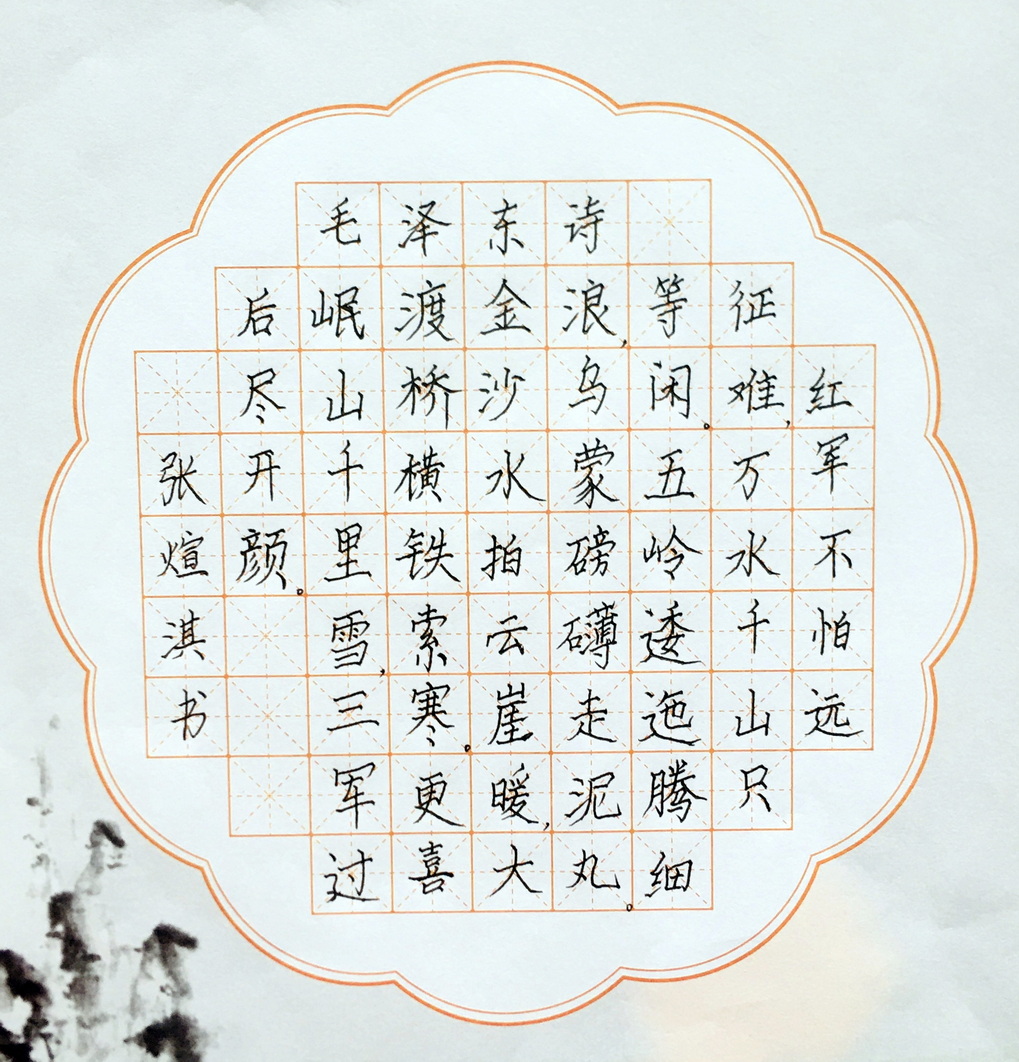 毛泽东诗
红军不怕远
征难,万水千山只
等闲。五岭逶迤腾细
浪,乌蒙磅礴走泥丸。
金沙水拍云崖暖,大
渡桥横铁索寒。更喜
岷山千里雪,三军过
后尽开颜。
张煊淇书